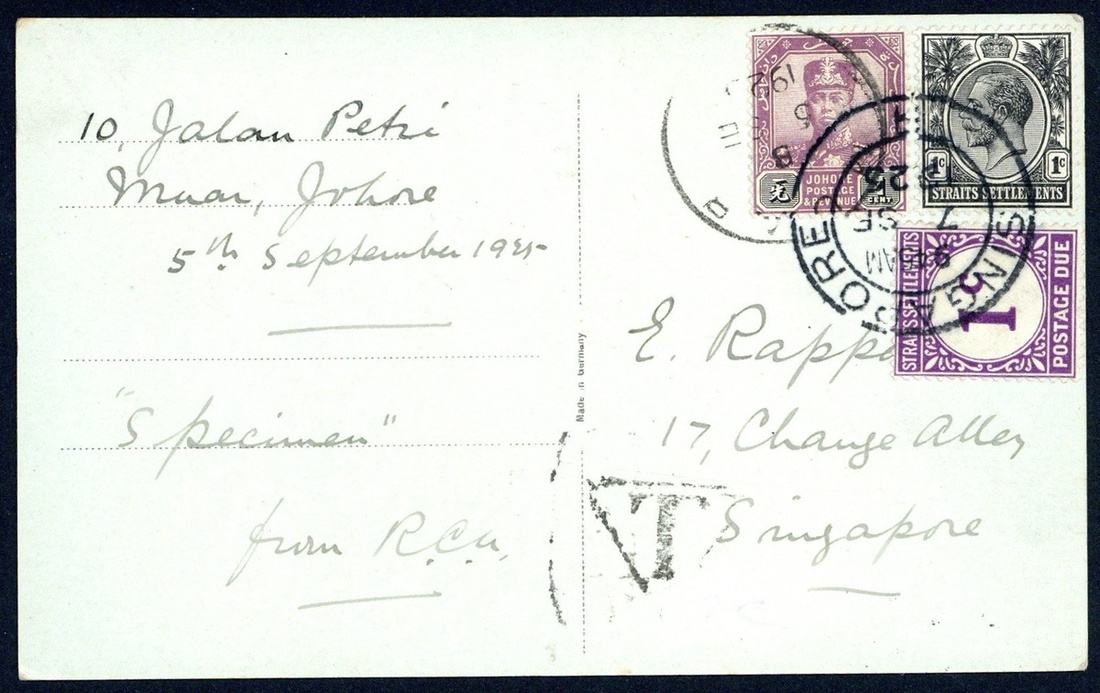 10, Jalan Petri
Muar, Johore
5th September 1925
"Specimen"
from R.C.
Made in Germany
JOHORE
POSTAGE
& REVENUE
1
CENT
1c 1c
STRAITS SETTLEMENTS
STRAITS SETTLEMENTS
1c
POSTAGE DUE
SINGAPORE
9 45 AM
7 SE
25
192
5
E. Rappa
17, Change Alley
Singapore
T